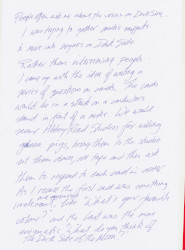 People often ask me about the voices on Dark Side...
I was trying to gather mad snippets
to move into segues in Dark Side
Rather than interviewing people
I came up with the idea of writing a
series of questions on cards. The cards
would be in a stack on a conductors
stand in front of a mike. We would
scour Abbey Road Studios for willing
guinea pigs, bring them to the studio
sit them down, roll tape and then ask
them to respond to each card in turn.
As I recall the first card was something
and apparently
irrelevant like "What's your favourite
colour?" and the last was the more
enigmatic "What do you think of
The Dark Side of the Moon?"